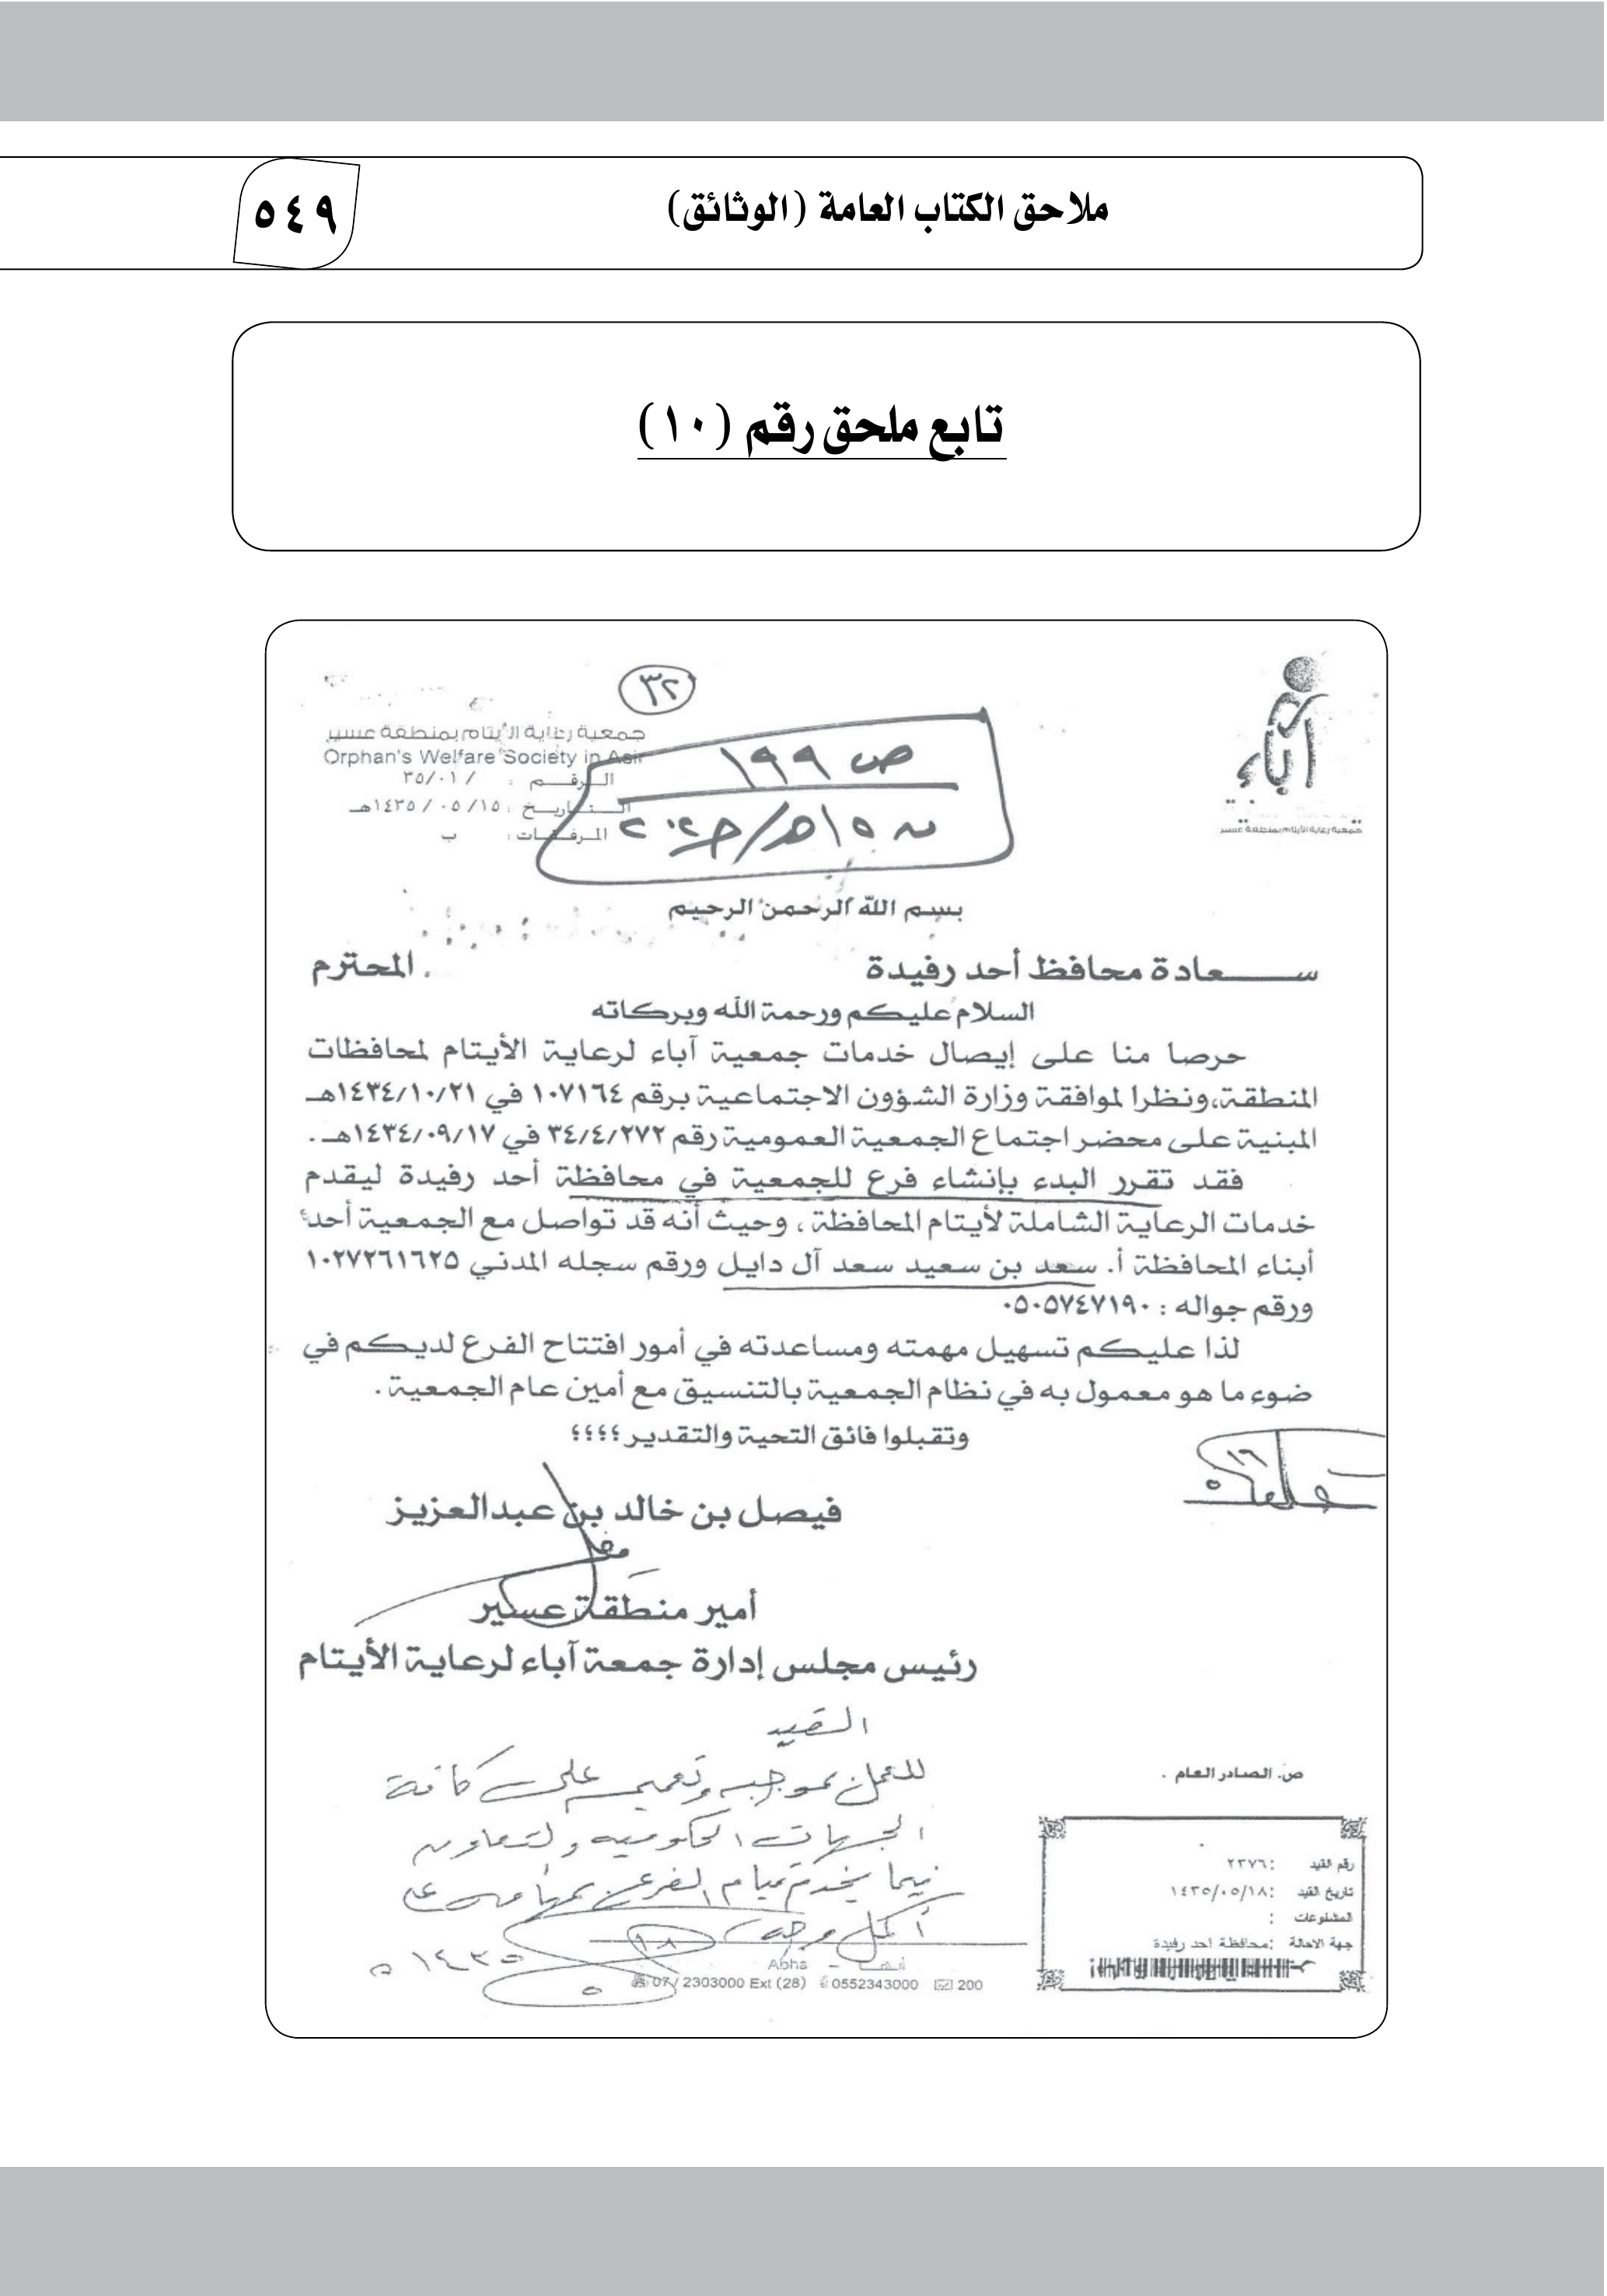 ملاحق الكتاب العامة (الوثائق)
٥٤٩
تابع ملحق رقم (١٠)
٣٢
آباء
جمعية رعاية الأيتام بمنطقة عسير
جمعية رعاية الأيتام بمنطقة عسير
Orphan's Welfare Society in Asir
الـرقــــم : / ٣٥/٠١
الـــتـــاريـــخ : ١٤٣٥/٠٥/١٥هـ
المـرفـقـات: ب
ص ١٩٩
بسم الله الرحمن الرحيم
ســــعادة محافظ أحد رفيدة . المحترم
السلام عليكم ورحمة الله وبركاته
حرصا منا على إيصال خدمات جمعية آباء لرعاية الأيتام لمحافظات
المنطقة،ونظرا لموافقة وزارة الشؤون الاجتماعية برقم ١٠٧١٦٤ في ١٤٣٤/١٠/٢١هـ
المبنية على محضر اجتماع الجمعية العمومية رقم ٣٤/٤/٢٧٢ في ١٤٣٤/٠٩/١٧هـ .
فقد تقرر البدء بإنشاء فرع للجمعية في محافظة أحد رفيدة ليقدم
خدمات الرعاية الشاملة لأيتام المحافظة ، وحيث أنه قد تواصل مع الجمعية أحد
أبناء المحافظة أ. سعد بن سعيد سعد آل دايل ورقم سجله المدني ١٠٢٧٢٦١٦٢٥
ورقم جواله : ٠٥٠٥٧٤٧١٩٠
لذا عليكم تسهيل مهمته ومساعدته في أمور افتتاح الفرع لديكم في
ضوء ما هو معمول به في نظام الجمعية بالتنسيق مع أمين عام الجمعية .
وتقبلوا فائق التحية والتقدير ؛؛؛؛
فيصل بن خالد بن عبدالعزيز
أمير منطقة عسير
رئيس مجلس إدارة جمعة آباء لرعاية الأيتام
القيد
للعمل بموجبه وتعميمه على كافة
الجهات الحكومية والتعاون
فيما يخدم قيام الفرع بمهامه على
أكمل وجه
١٤٣٥
ص. الصادر العام .
رقم القيد : ٢٣٧٦
تاريخ القيد : ١٤٣٥/٠٥/١٨
المشفوعات :
جهة الاحالة : محافظة احد رفيدة
Abha - أبهـا
07 / 2303000 Ext (28) 0552343000 200